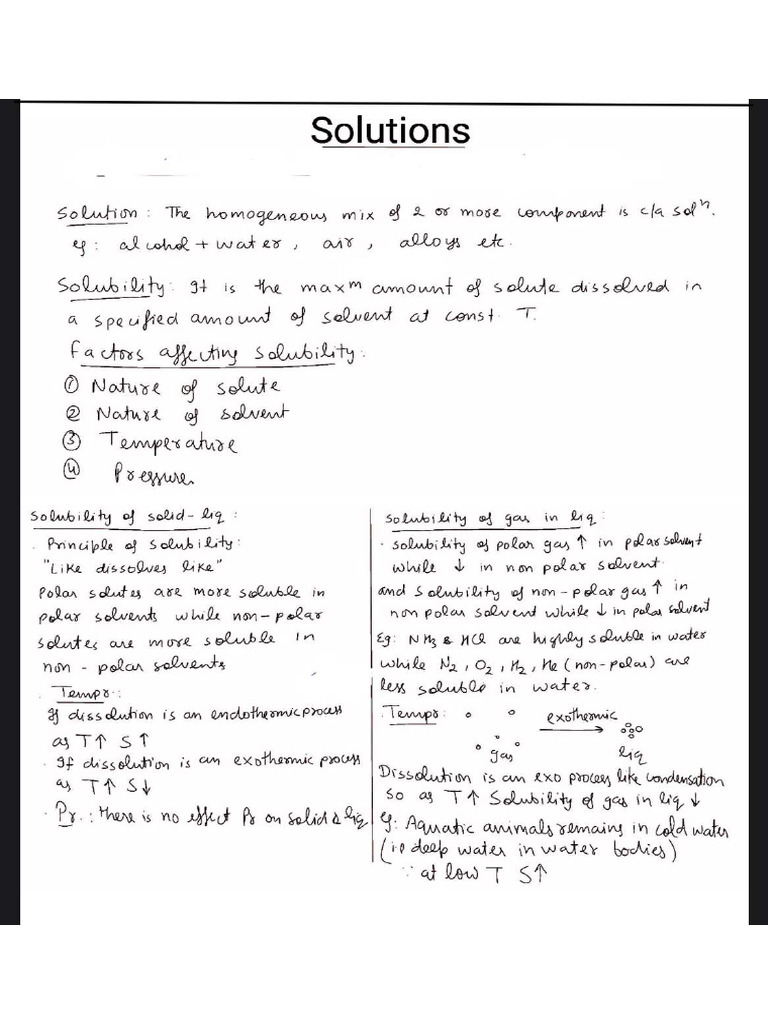 Solutions
Solution : The homogeneous mix of 2 or more component is c/a solⁿ.
eg : alcohol + water , air , alloys etc.
Solubility : It is the maxᵐ amount of solute dissolved in
a specified amount of solvent at const. T.
Factors affecting solubility :
① Nature of solute
② Nature of solvent
③ Temperature
④ Pressure
Solubility of solid-liq :
. Principle of solubility :
"Like dissolves like"
Polar solutes are more soluble in
polar solvents while non-polar
solutes are more soluble in
non-polar solvents
. Tempr :
If dissolution is an endothermic process
as T↑ S↑
. If dissolution is an exothermic process
as T↑ S↓
. Pr. : there is no effect Pr on solid & liq
Solubility of gas in liq :
. solubility of polar gas ↑ in polar solvent
while ↓ in non polar solvent.
and solubility of non-polar gas ↑ in
non polar solvent while ↓ in polar solvent
Eg: NH3 & HCl are highly soluble in water
while N2 , O2 , H2 , He (non-polar) are
less soluble in water.
. Tempr :
exothermic
gas
liq
Dissolution is an exo process like condensation
so as T↑ Solubility of gas in liq ↓
eg: Aquatic animals remains in cold water
(i.e deep water in water bodies)
∵ at low T S↑